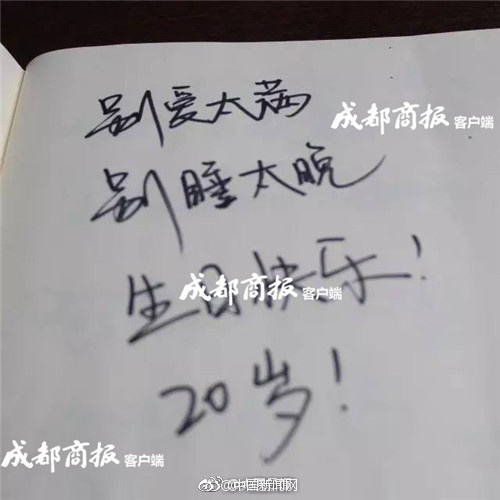 别爱太满
成都商报 客户端
别睡太晚
生日快乐！
成都商报 客户端
20岁！
成都商报 客户端
@中国新闻网